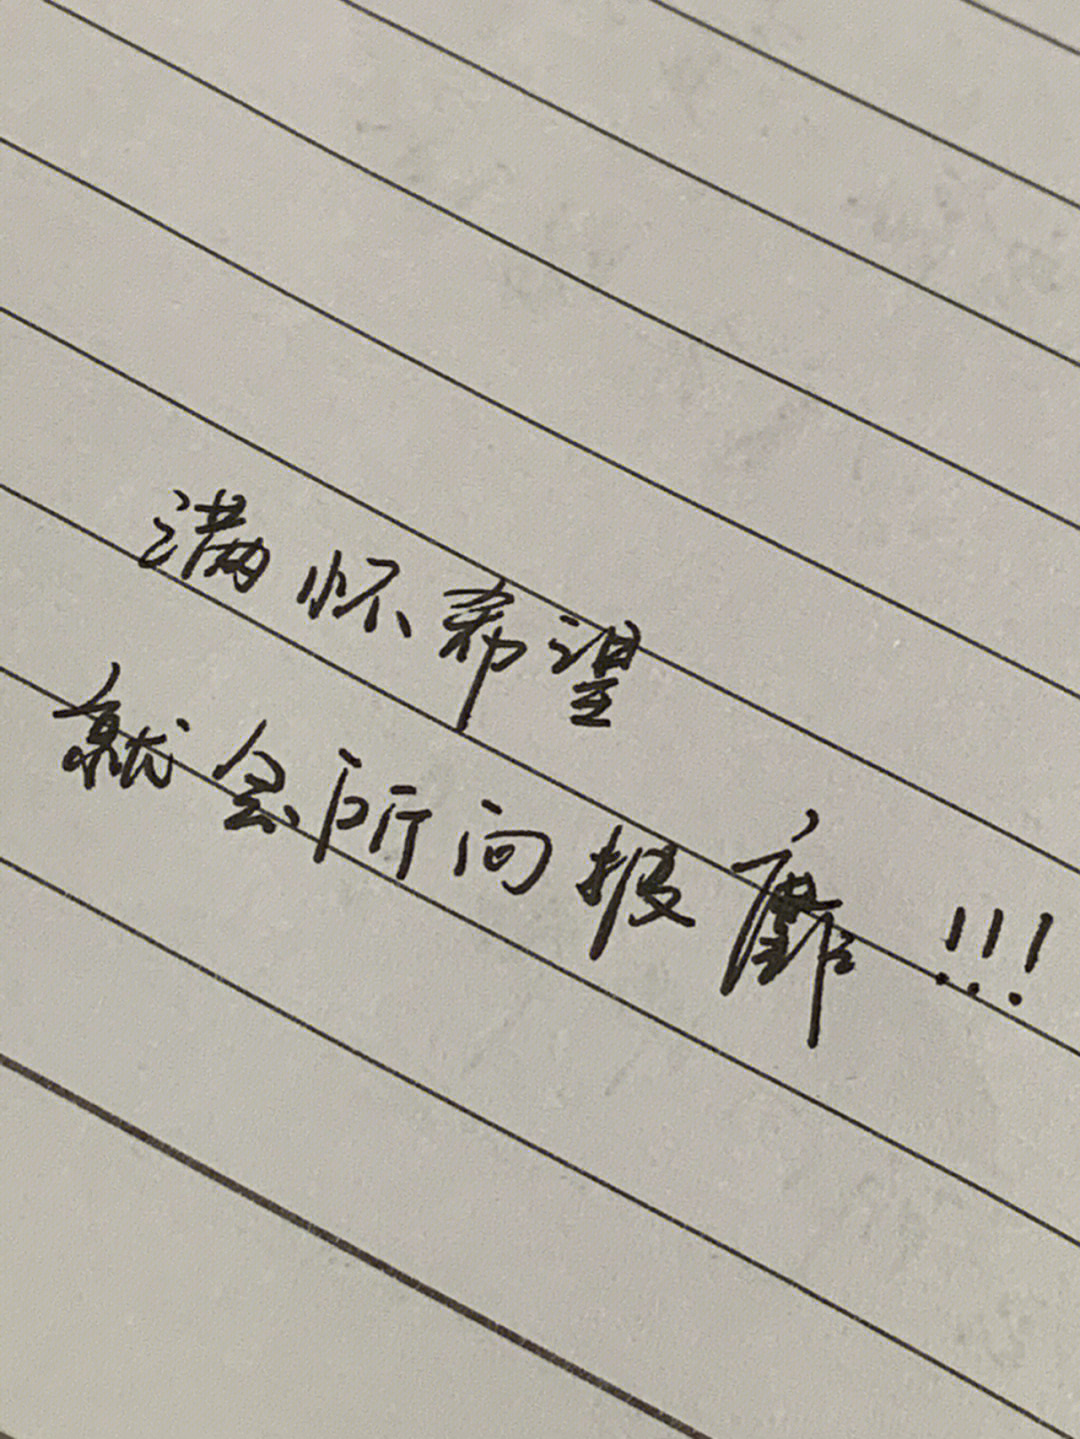 满怀希望
就会所向披靡!!!